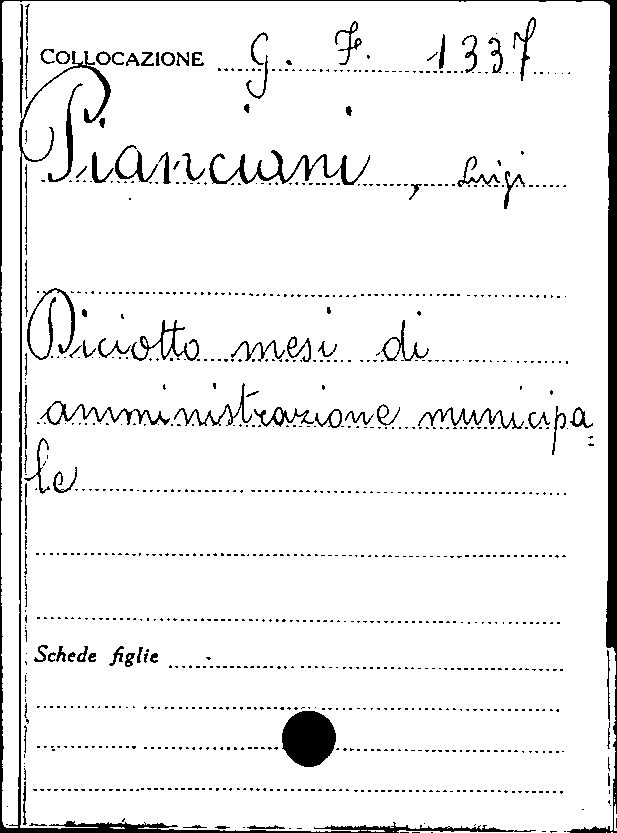 COLLOCAZIONE G. F. 1337
Pianciani, Luigi
Diciotto mesi di
amministrazione municipa=
le
Schede figlie